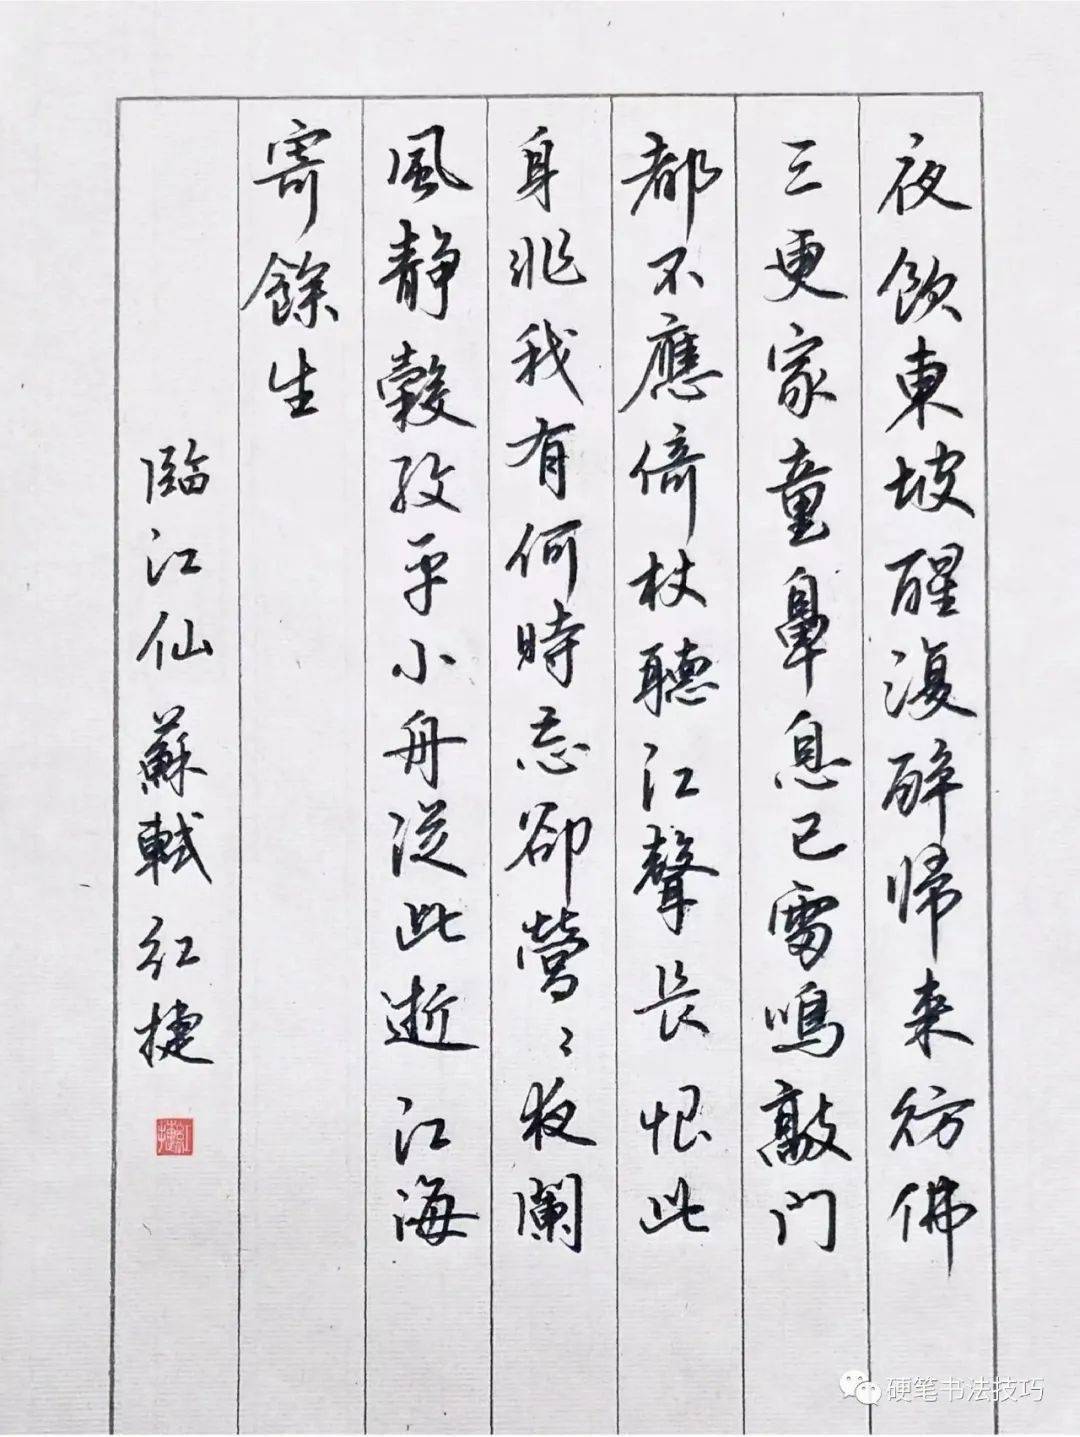 夜飲東坡醒復醉歸来彷彿
三更家童鼻息已雷鳴敲門
都不應倚杖聽江聲長恨此
身非我有何時忘卻營〻夜闌
風靜縠紋平小舟從此逝江海
寄餘生
臨江仙蘇軾 紅捷
紅捷
硬笔书法技巧